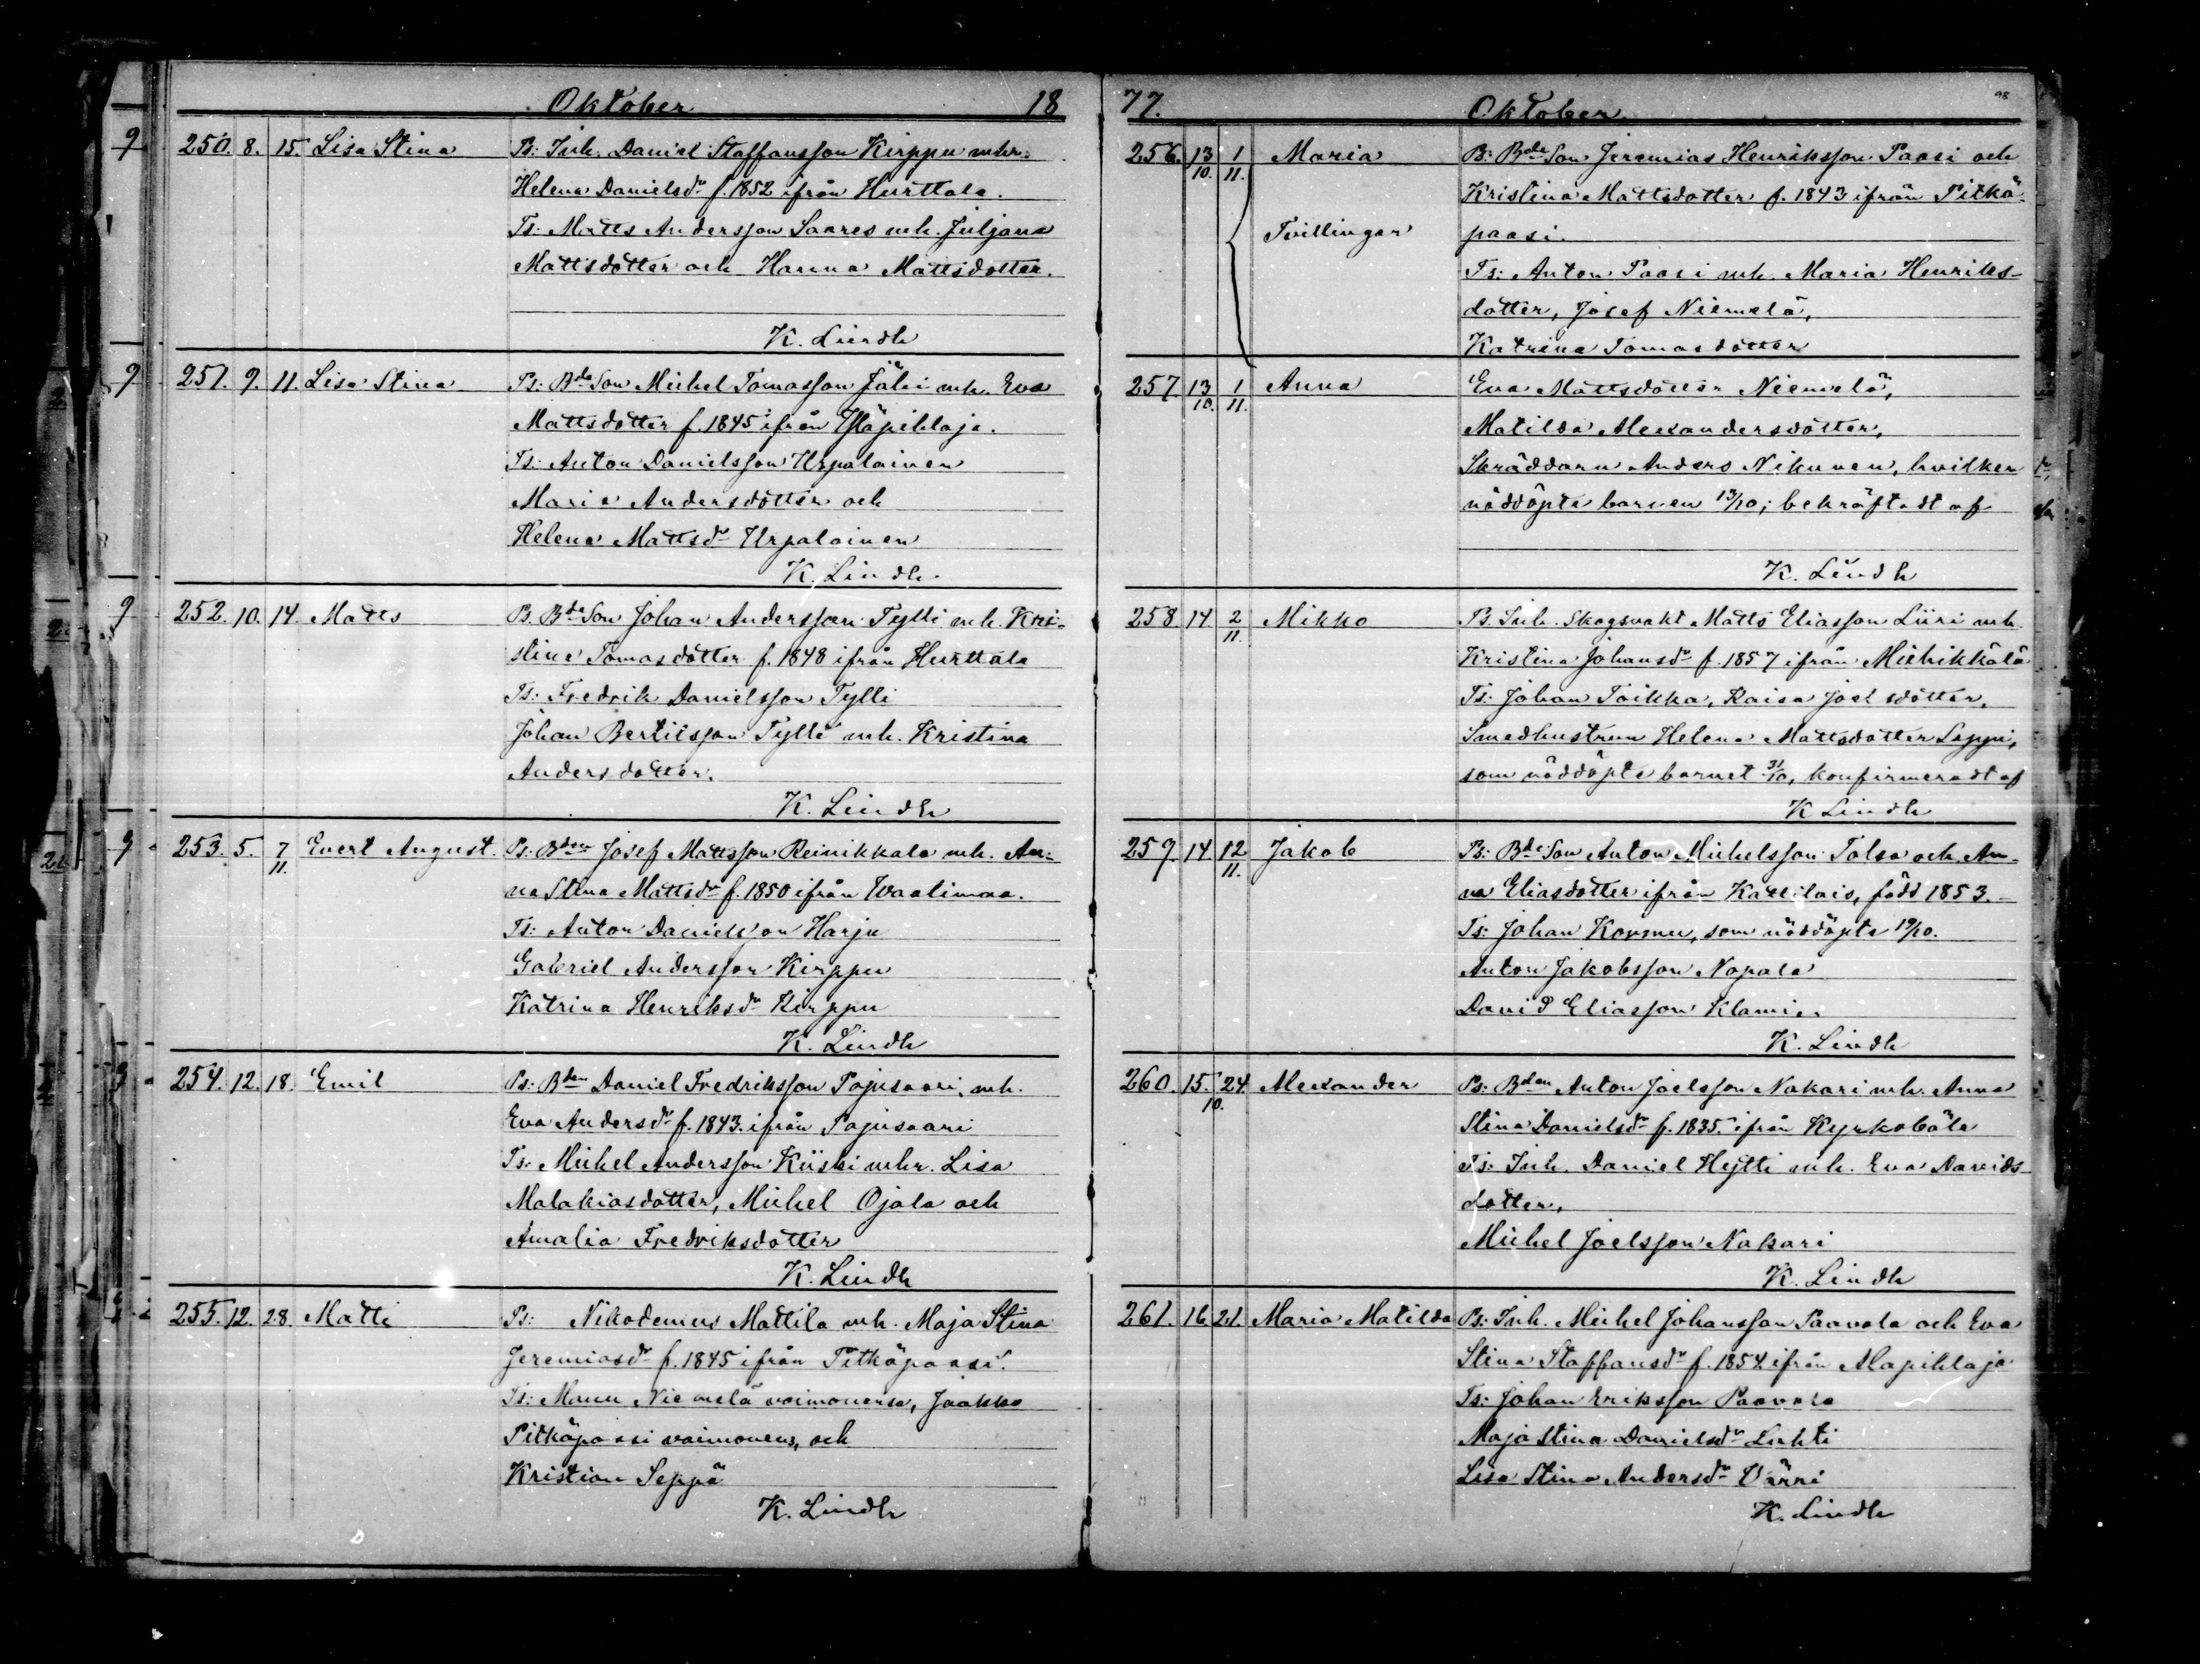 Oktober 18
250. 8. 15. Lisa Stina Ps: Inh. Daniel Staffansson Kirppu mhr.
Helena Danielsdr f. 1852 ifrån Hurttala.
Ts: Matts Andersson Saares mh. Juljana
Mattsdotter och Hanna Mattsdotter.
K. Lindh
251. 9. 11. Lisa Stina Ps: Bde Son Michel Tomasson Jäli mh. Eva
Mattsdotter f. 1845 ifrån
Ts: Anton Danielsson Urpalainen
Maria Andersdotter och
Helena Mattsdr Urpalainen
K. Lindh
252. 10. 14. Matts Ps. Bde Son Johan Andersson Tylli mh. Kri-
stina Tomasdotter f. 1848 ifrån Hurttala
Ts: Fredrik Danielsson Tylli
Johan Bertilsson Tylli mh. Kristina
Andersdotter.
K. Lindh
253. 5. 7/11. Evert August. Ps: Bden Josef Mattsson Reinikkala mh. An-
na Stina Mattsdr f. 1850 ifrån Waalimaa.
Ts: Anton Danielsson Harju
Gabriel Andersson Kirppu
Katrina Henriksdr Kirppu
K. Lindh
254. 12. 18. Emil Ps: Bden Daniel Fredriksson Pajusaari, mh.
Eva Andersdr f. 1843. ifrån Pajusaari
Ts: Michel Andersson Kiiski mhr. Lisa
Malakiasdotter, Michel Ojala och
Amalia Fredriksdotter
K. Lindh
255. 12. 28. Matti Ps: Nikodemus Mattila mh. Maja Stina
Jeremiasdr f. 1845 ifrån Pitkäpaasi.
Ts: Manu Niemelä vaimonensa, Jaakko
Pitkäpaasi vaimonens, och
Kristian Seppä
K. Lindh
77. Oktober. 98
256. 13/10. 1/11. Maria Ps: Bde Son Jeremias Henriksson Paasi och
Kristina Mattsdotter f. 1843 ifrån Pitkä-
Tvillingar paasi.
Ts: Anton Paasi mh. Maria Henriks-
dotter, Josef Niemelä,
Katrina Tomasdotter
257. 13/10. 1/11. Anna Eva Mattsdotter Niemelä,
Matilda Alexandersdotter,
Skräddarn Anders Nikunen, hvilken
nöddöpte barnen 13/10; bekräftadt af
K. Lindh
258. 14. 2/11. Mikko Ps. Inh. Skogsvakt Matts Eliasson Liiri mh
Kristina Johansdr f. 1857 ifrån Miehikkälä
Ts: Johan Toikka, Kaisa Joelsdotter,
Smedhustrun Helena Mattsdotter Lappi,
som nöddöpte barnet 31/10, konfirmeradt af
K Lindh
259. 14 12/11. Jakob Ps: Bde Son Anton Michelsson Tolsa och An-
na Eliasdotter ifrån Kattilais, född 1853.
Ts: Johan Kormu, som nöddöpte 19/10.
Anton Jakobsson Nopala
David Eliasson Klami.
K. Lindh
260. 15. 24/10. Alexander Ps: Bden Anton Joelsson Nakari mh. Anna
Stina Danielsdr f. 1835. ifrån Kyrkoböle
Ts: Inh. Daniel Hejtti mh. Eva Davids
dotter,
Michel Joelsson Nakari
K. Lindh
261. 16. 21. Maria Matilda Ps: Inh. Michel Johansson Paavola och Eva
Stina Staffansdr f. 1854 ifrån Alapihlaja
Ts: Johan Eriksson Paavola
Maja Stina Danielsdr Lahti
Lisa Stina Andersdr Värri
K. Lindh